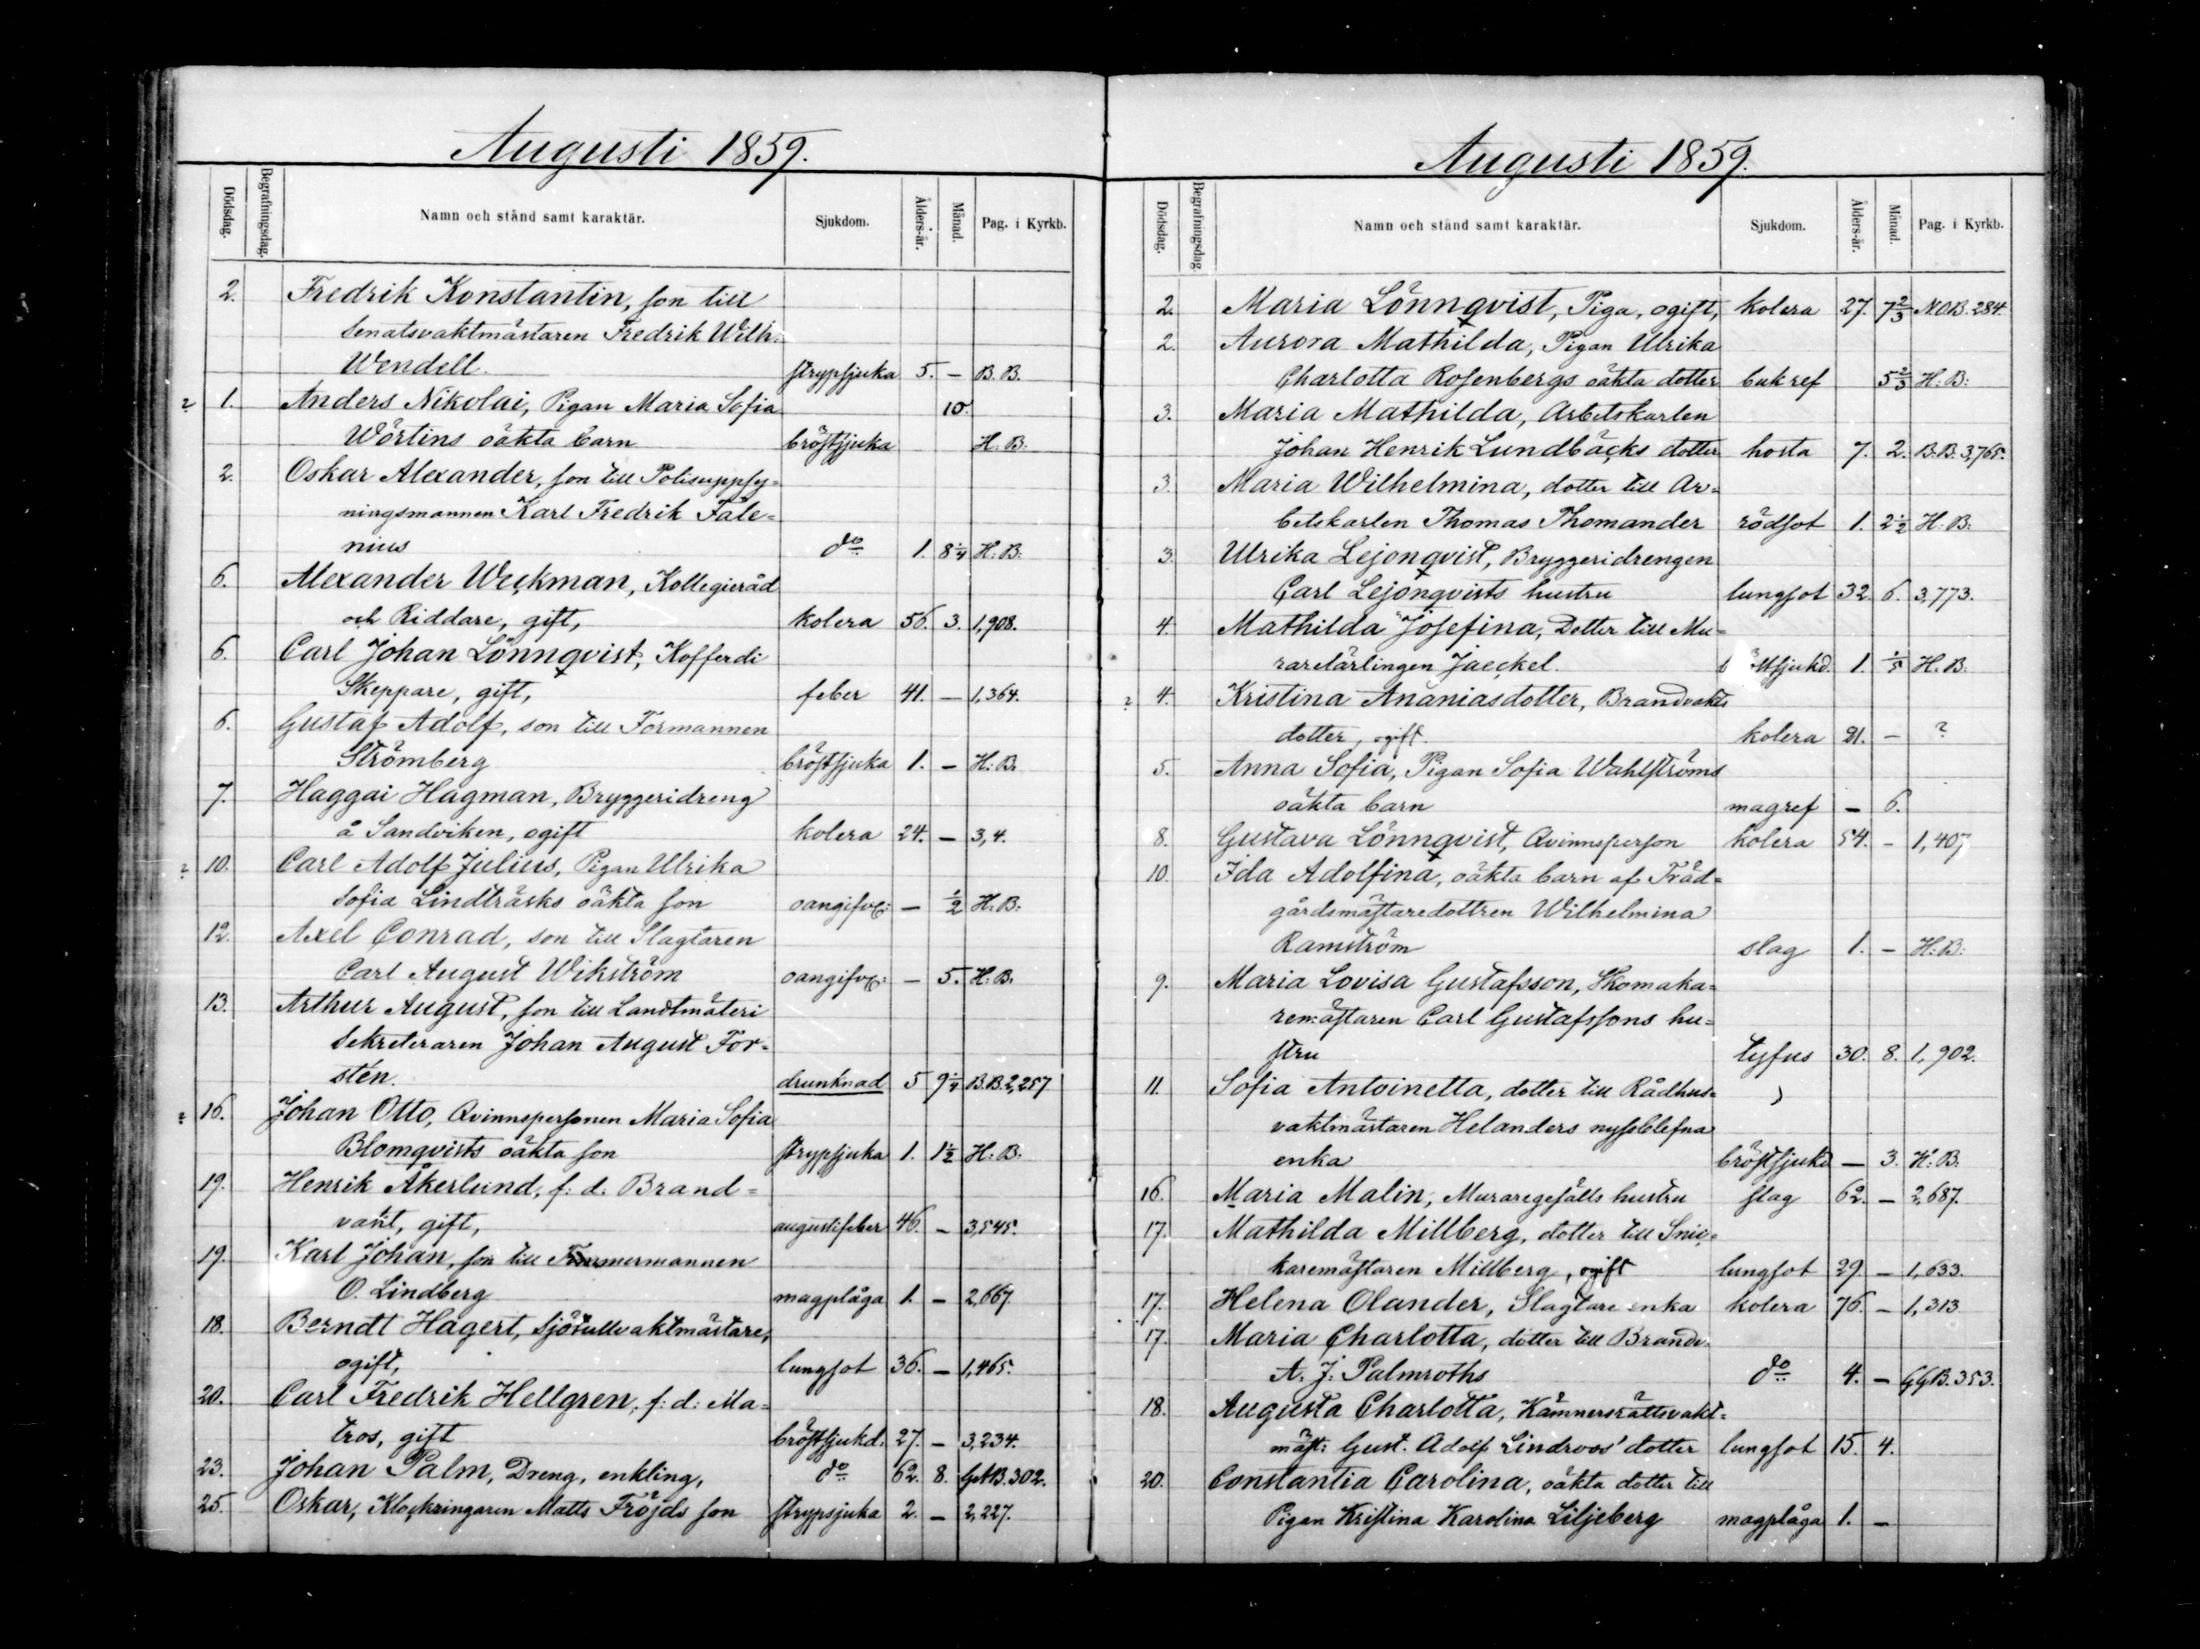 Augusti 1859.
Dödsdag. Begrafningsdag. Namn och stånd samt karaktär. Sjukdom. Ålders-år. Månad. Pag. i Kyrkb.
2. Fredrik Konstantin, son till
Senatsvaktmästaren Fredrik Wilh:
Wendell. strypsjuka 5. — B. B.
? 1. Anders Nikolai, Pigan Maria Sofia 10.
Wörtins oäkta barn bröstsjuka H. B.
2. Oskar Alexander, son till Polisuppsy=
ningsmannen Karl Fredrik Fale=
nius do 1. 8 1/4 H: B:
6. Alexander Weckman, Kollegieråd
och Riddare, gift, kolera 56. 3. 1,908.
6. Carl Johan Lönnqvist, Kofferdi
Skeppare, gift, feber 41. — 1,364.
6. Gustaf Adolf, son till Formannen
Strömberg bröstsjuka 1. — H: B.
7. Haggai Hagman, Bryggeridreng
å Sandviken, ogift kolera 24. — 3,4.
? 10. Carl Adolf Julius, Pigan Ulrika
Sofia Lindträsks oäkta son — 1/2 H: B:
12. Axel Conrad, son till Slagtaren
Carl August Wikström — 5. H: B.
13. Arthur August, son till Landtmäteri
Sekreteraren Johan August For=
stén. drunknad 5 9 1/4 B.B. 2,257
? 16. Johan Otto, Qvinnspersonen Maria Sofia
Blomqvists oäkta son strypsjuka 1. 1 1/2 H: B:
19. Henrik Åkerlund, f: d: Brand=
vakt, gift, augustifeber 46. — 3,545.
19. Karl Johan, son till Timmermannen
O. Lindberg magplåga 1. — 2,667.
18. Berndt Hagert, Sjötullvaktmästare,
ogift, lungsot 36. — 1,465.
20. Carl Fredrik Hellgren, f: d: Ma=
tros, gift bröstsjukd. 27. — 3,234.
23. Johan Palm, Dreng, enkling, do 62. 8. GAB. 302.
25. Oskar, Klockringaren Matts Fröjds son strypsjuka 2. — 2,227.
Augusti 1859.
Dödsdag. Begrafningsdag Namn och stånd samt karaktär. Sjukdom. Ålders-år. Månad. Pag. i Kyrkb.
2. Maria Lönnqvist, Piga, ogift, kolera 27. 7 2/3 N.O.B. 284.
2. Aurora Mathilda, Pigan Ulrika
Charlotta Rosenbergs oäkta dotter bukref 5 2/3 H: B:
3. Maria Mathilda, Arbetskarlen
Johan Henrik Lundbäcks dotter hosta 7. 2. B.B. 3,765.
3. Maria Wilhelmina, dotter till Ar=
betskarlen Thomas Thomander rödsot 1. 2 1/2 H: B:
3. Ulrika Lejonqvist, Bryggeridrengen
Carl Lejonqvists hustru lungsot 32. 6. 3,773.
4. Mathilda Josefina, Dotter till Mu=
rarelärlingen Jaeckel. 1. 1/5 H. B:
? 4. Kristina Ananiasdotter, Brandvakts
dotter, ogift. kolera 21. — ?
5. Anna Sofia, Pigan Sofia Wahlströms
oäkta barn magref — 6.
8. Gustava Lönnqvist, Qvinnsperson kolera 54. — 1,407
10. Ida Adolfina, oäkta barn af Träd=
gårdsmästaredottren Wilhelmina
Ramström slag 1. — H: B:
9. Maria Lovisa Gustafsson, Skomaka=
remästaren Carl Gustafssons hu=
stru tyfus 30. 8. 1,902.
11. Sofia Antoinetta, dotter till Rådhus=
vaktmästaren Helanders nyssblefna
enka bröstsjukd — 3. H: B.
16. Maria Malin, Muraregesälls hustru slag 62. — 2,687.
17. Mathilda Millberg, dotter till Snic=
karemästaren Millberg, ogift lungsot 29 — 1,633.
17. Helena Olander, Slagtare enka kolera 76. — 1,313
17. Maria Charlotta, dotter till Brandv.
A. J: Palmroths do 4. — GGB. 353.
18. Augusta Charlotta, Kämnersrättsvakt=
mäst: Gust. Adolf Lindroos' dotter lungsot 15. 4.
20. Constantia Carolina, oäkta dotter till
Pigan Kristina Karolina Liljeberg magplåga 1. —